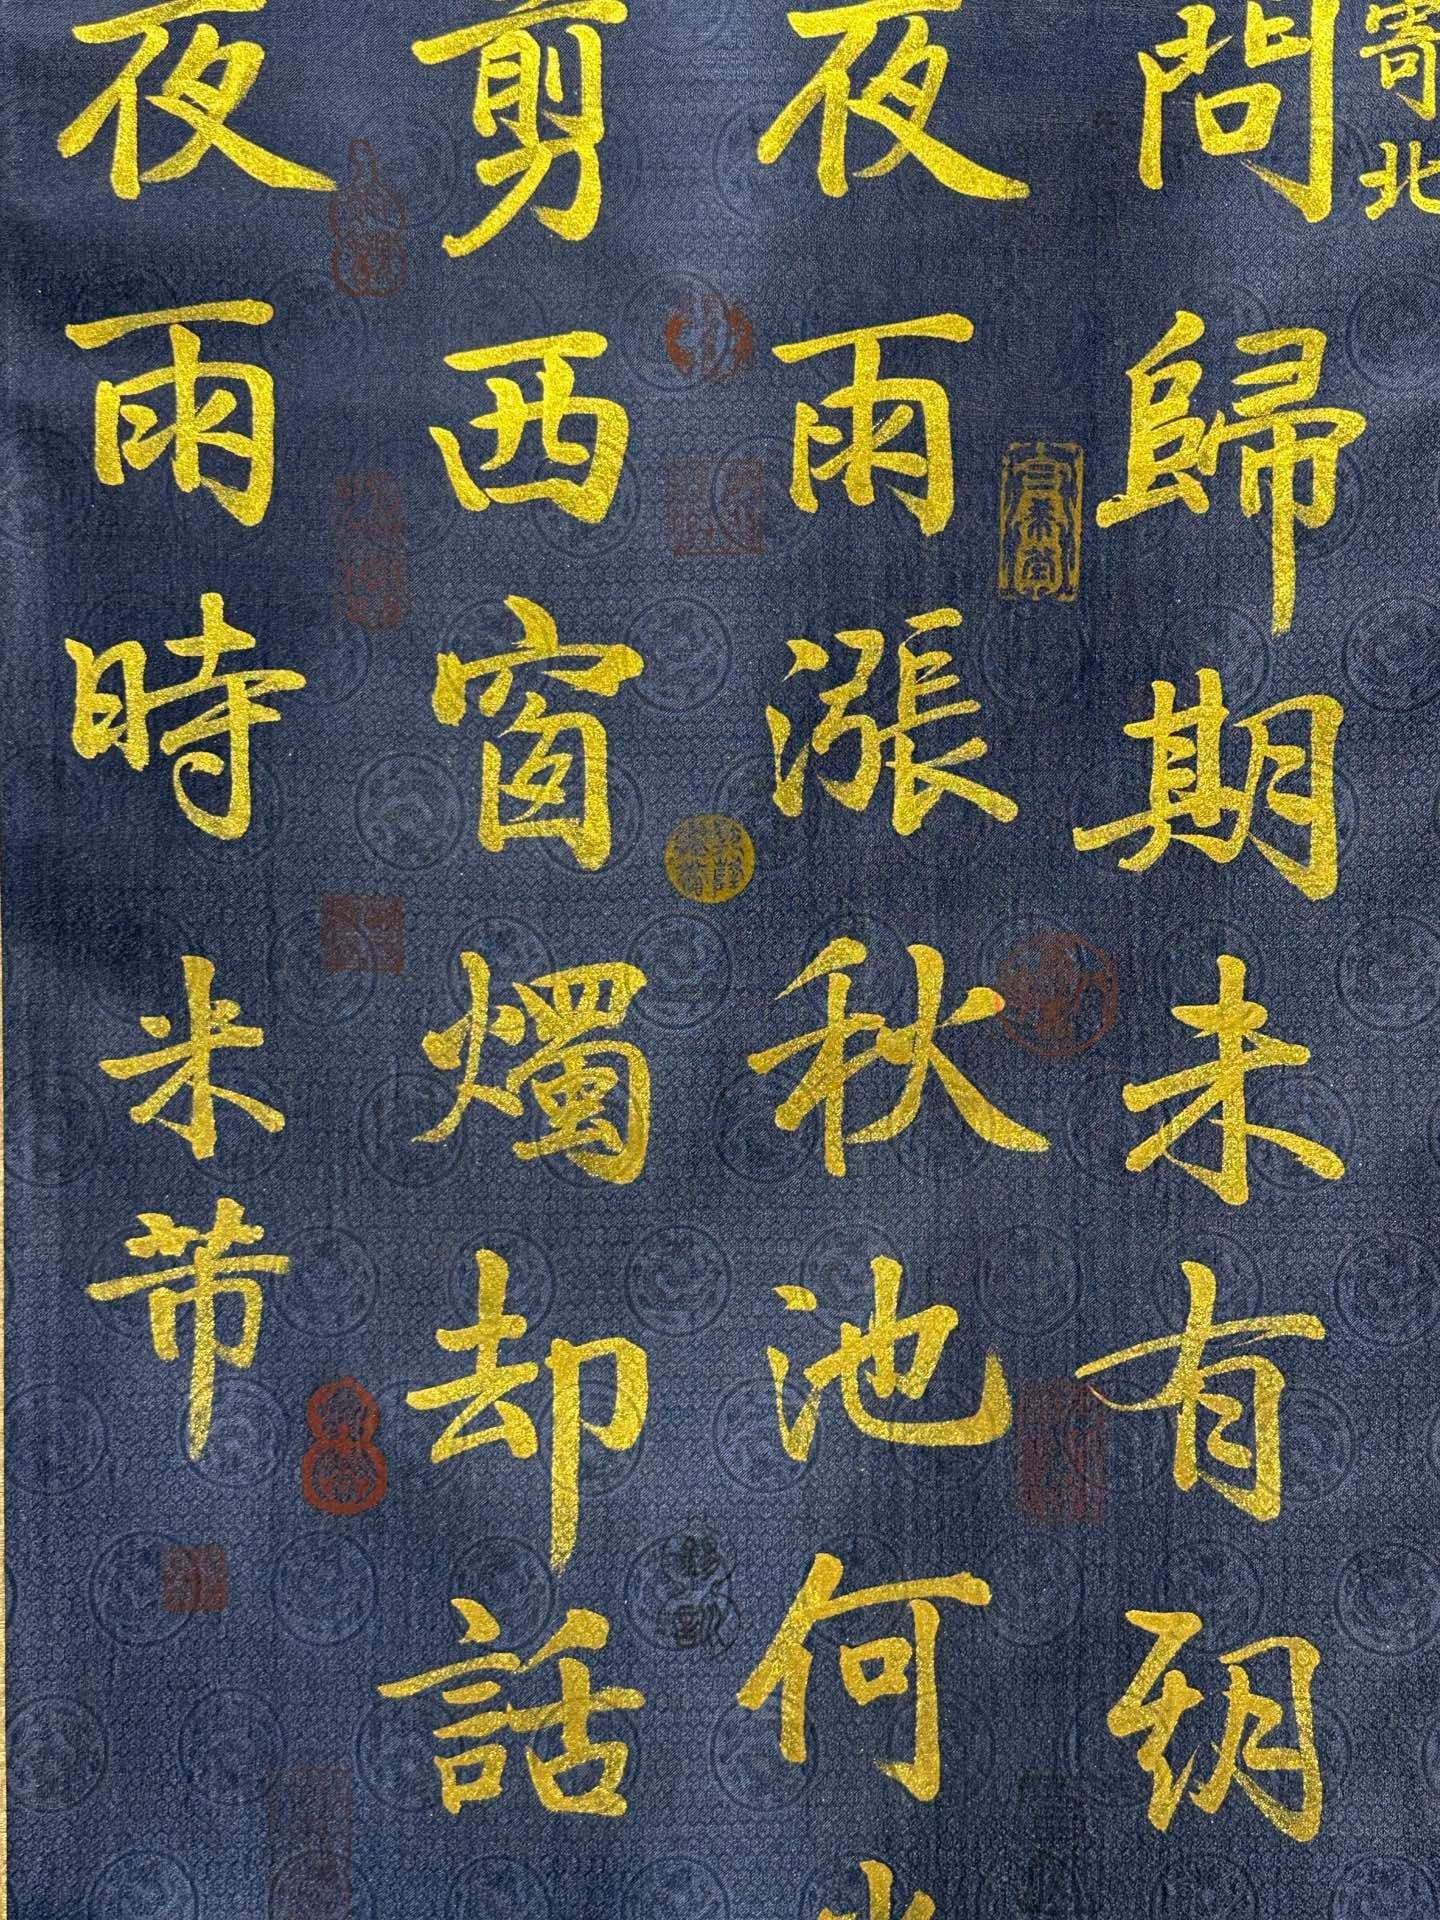 寄北
問歸期未有期
夜雨漲秋池何
剪西窗燭却話
夜雨時米芾